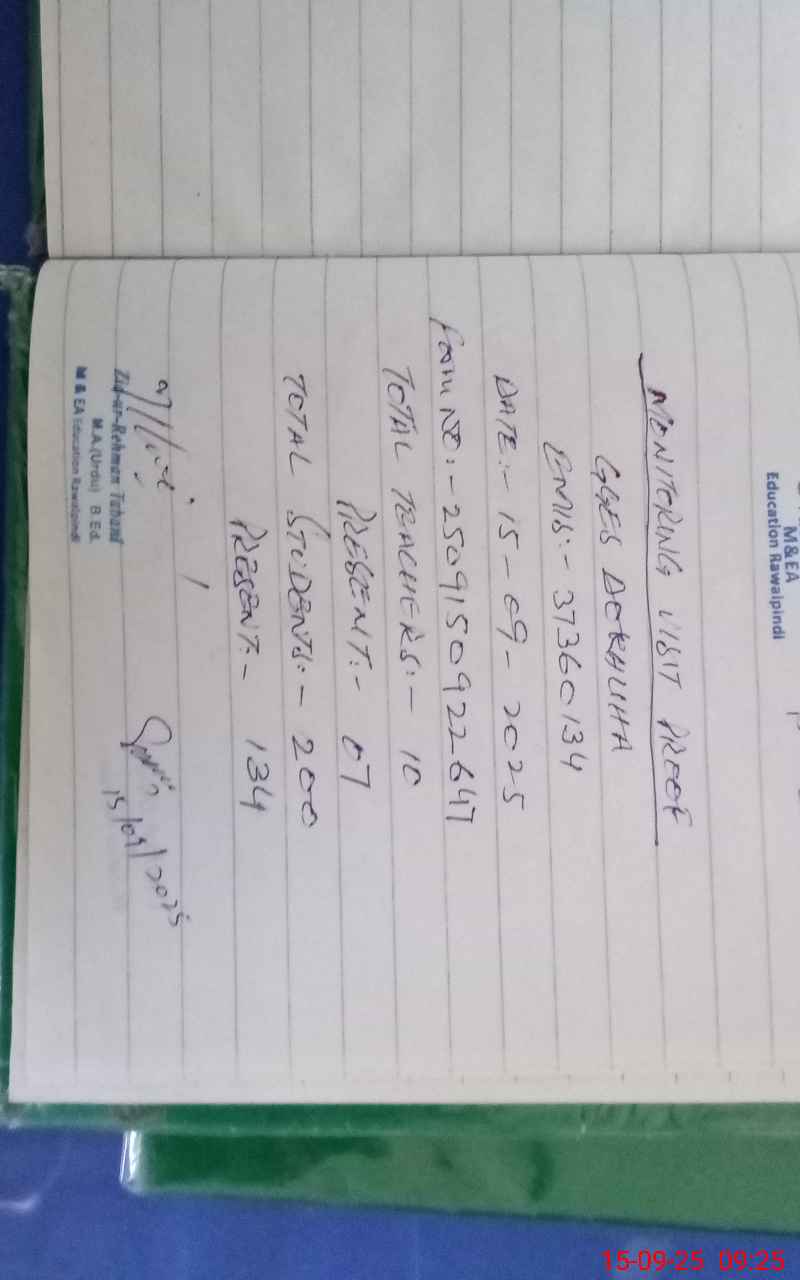 M&EA
Education Rawalpindi
MONITORING VISIT PROOF
GGES DOKALIHA
EMIS:- 37360134
DATE:- 15-09-2025
Form NO:- 250915092264
TOTAL TEACHERS:- 10
PRESENT:- 07
TOTAL STUDENTS:- 200
PRESENT:- 134
15/09/2025
Zia-ur-Rehman
M.A.(Urdu) B.Ed.
M & EA Education Rawalpindi
15-09-25 09:25